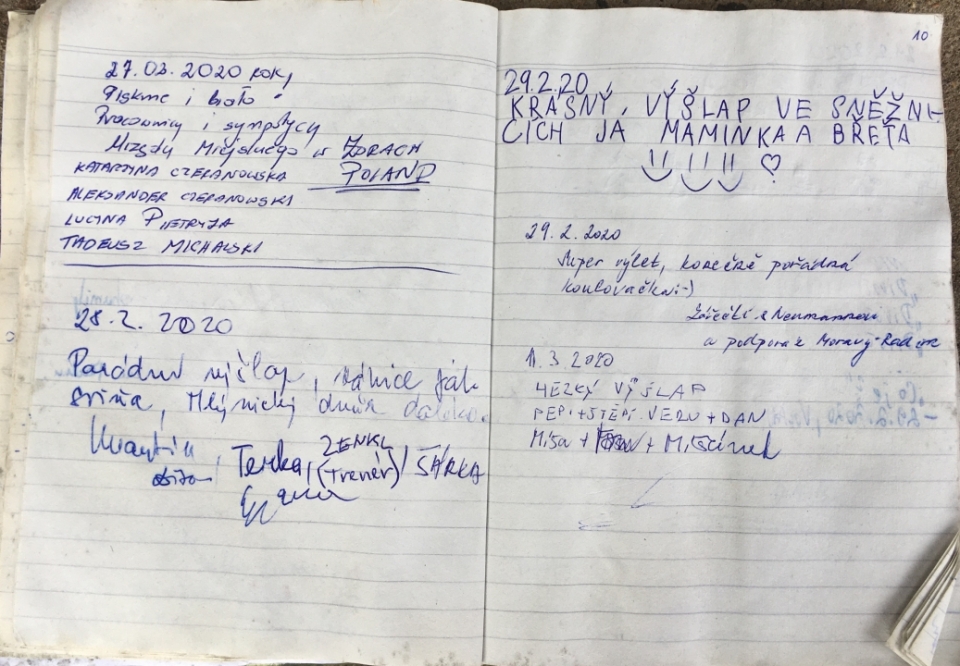 27.02.2020 roku
Pięknie i biało
Pracownicy i sympatycy
Urzędu Miejskiego w ŻORACH
KATARZYNA CZERANOWSKA POLAND
ALEKSANDER CZERANOWSKI
LUCYNA PIETRYJA
TADEUSZ MICHALSKI
28.2. 2020
Parádní výšlap, vánice jak
sviňa, Mlýnický dvůr daleko.
Kvantík, Terka, ZENKL (Trenér), ŠÁRKA
10
29.2.20
KRÁSNÝ, VÝŠLAP VE SNĚŽNI-
CÍCH JA MAMINKA A BŘEŤA
29.2.2020
Super výlet, konečně pořádná
koulovačka :-)
a podpora z Moravy
11.3.2020
HEZKÝ VÝŠLAP
PEPI + ŠTĚPI VERU + DAN
Míša + + Mišánek